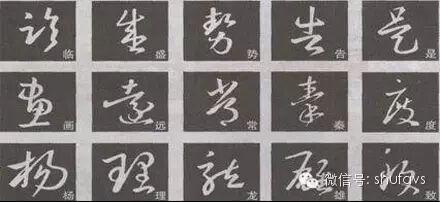 临 盛 势 告 是
画 远 常 秦 度
杨 理 龙 雄 致
微信号: shufavs